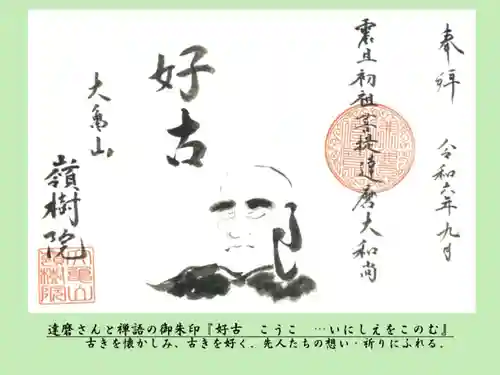 奉拝
令和六年九月
震旦初祖菩提達磨大和尚
好古
大亀山
嶺樹院
達磨さんと禅語の御朱印『好古　こうこ　…いにしえをこのむ』
古きを懐かしみ、古きを好く．先人たちの想い・祈りにふれる．